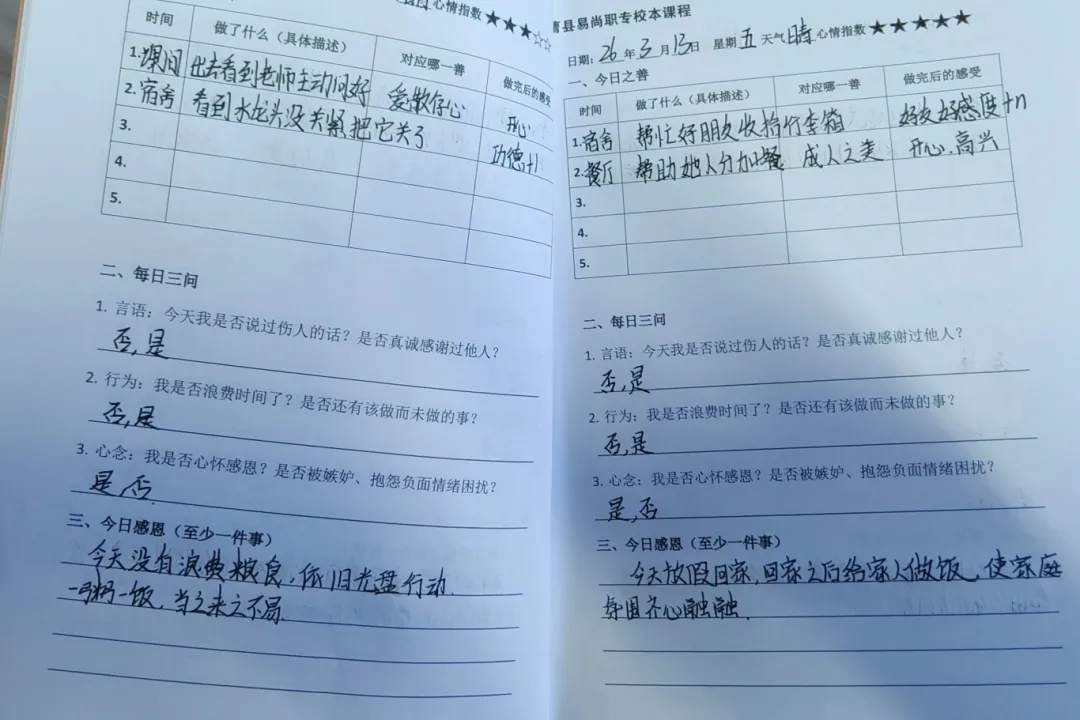 心情指数★★★☆☆
时间 做了什么（具体描述） 对应哪一善 做完后的感受
1.课间 出去看到老师主动问好 爱敬存心 开心
2.宿舍 看到水龙头没关紧把它关了 功德+1
3.
4.
5.
二、每日三问
1. 言语：今天我是否说过伤人的话？是否真诚感谢过他人？
否,是
2. 行为：我是否浪费时间了？是否还有该做而未做的事？
否,是
3. 心念：我是否心怀感恩？是否被嫉妒、抱怨负面情绪困扰？
是,否
三、今日感恩（至少一件事）
今天没有浪费粮食,依旧光盘行动.
一粥一饭,当之来之不易.
曹县易尚职专校本课程
日期：26年3月13日 星期五 天气晴 心情指数★★★★★
一、今日之善
时间 做了什么（具体描述） 对应哪一善 做完后的感受
1.宿舍 帮忙好朋友收拾行李箱 好友好感度+n
2.餐厅 帮助她人分加餐 成人之美 开心.高兴
3.
4.
5.
二、每日三问
1. 言语：今天我是否说过伤人的话？是否真诚感谢过他人？
否,是
2. 行为：我是否浪费时间了？是否还有该做而未做的事？
否,是
3. 心念：我是否心怀感恩？是否被嫉妒、抱怨负面情绪困扰？
是,否
三、今日感恩（至少一件事）
今天放假回家,回家之后给家人做饭,使家庭
氛围齐心融融.